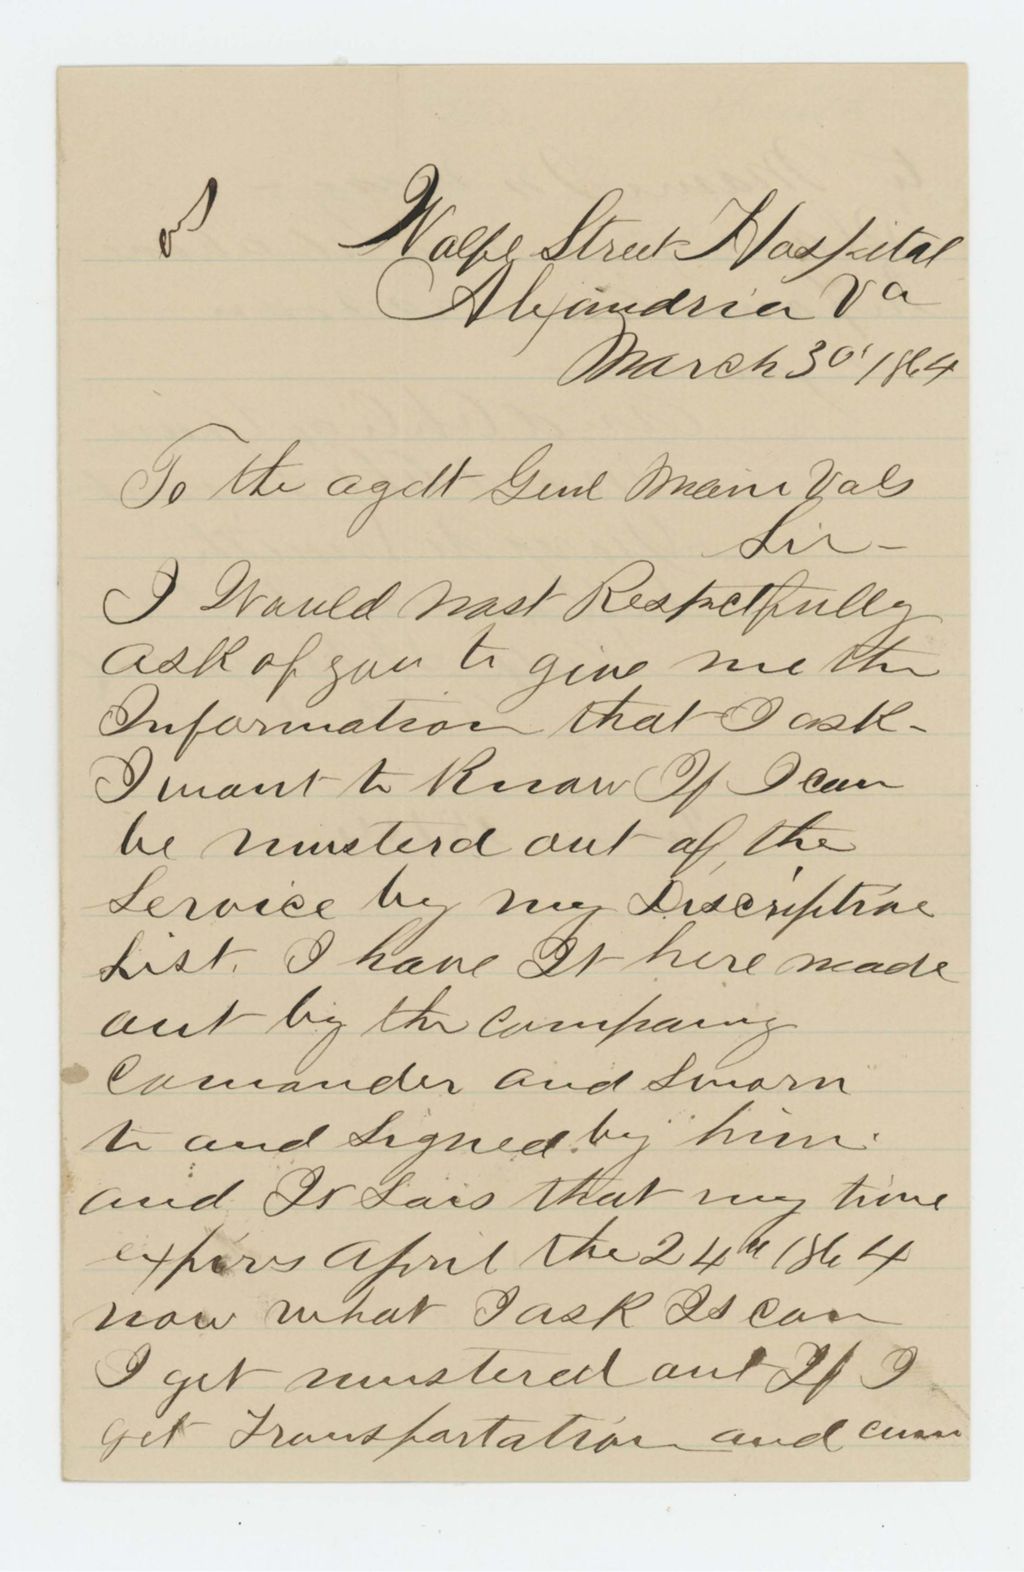 Wolfe Street Hospital
Alexandria Va
March 30' 1864
To the agdt Genl Maine Vols
Sir -
I Would most Respectfully
ask of you to give me the
Information that I ask -
I want to Know If I can
be musterd out of the
Service by my Discriptive
List. I have It here made
out by the Company
Comander and Sworn
to and Signed by him.
and It Sais that my time
expirs April the 24th 1864
now what I ask Is can
I get mustered out If I
get Transportation and